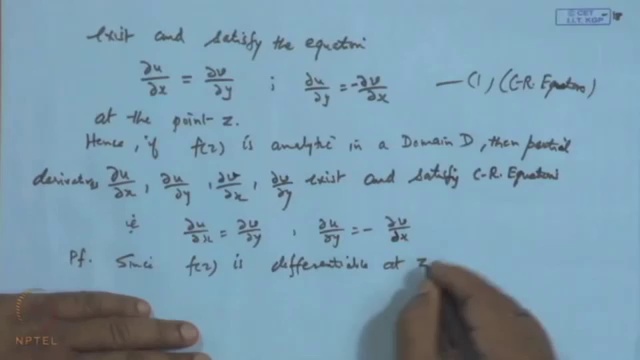 exist and satisfy the equation
∂u/∂x = ∂v/∂y ; ∂u/∂y = -∂v/∂x — (1) (C-R. Equations)
at the point z.
Hence, if f(z) is analytic in a Domain D, then partial
derivatives ∂u/∂x, ∂u/∂y, ∂v/∂x, ∂v/∂y exist and satisfy C-R. Equations
ie ∂u/∂x = ∂v/∂y , ∂u/∂y = - ∂v/∂x
Pf. Since f(z) is differentiable at z
© CET
I.I.T. KGP
NPTEL